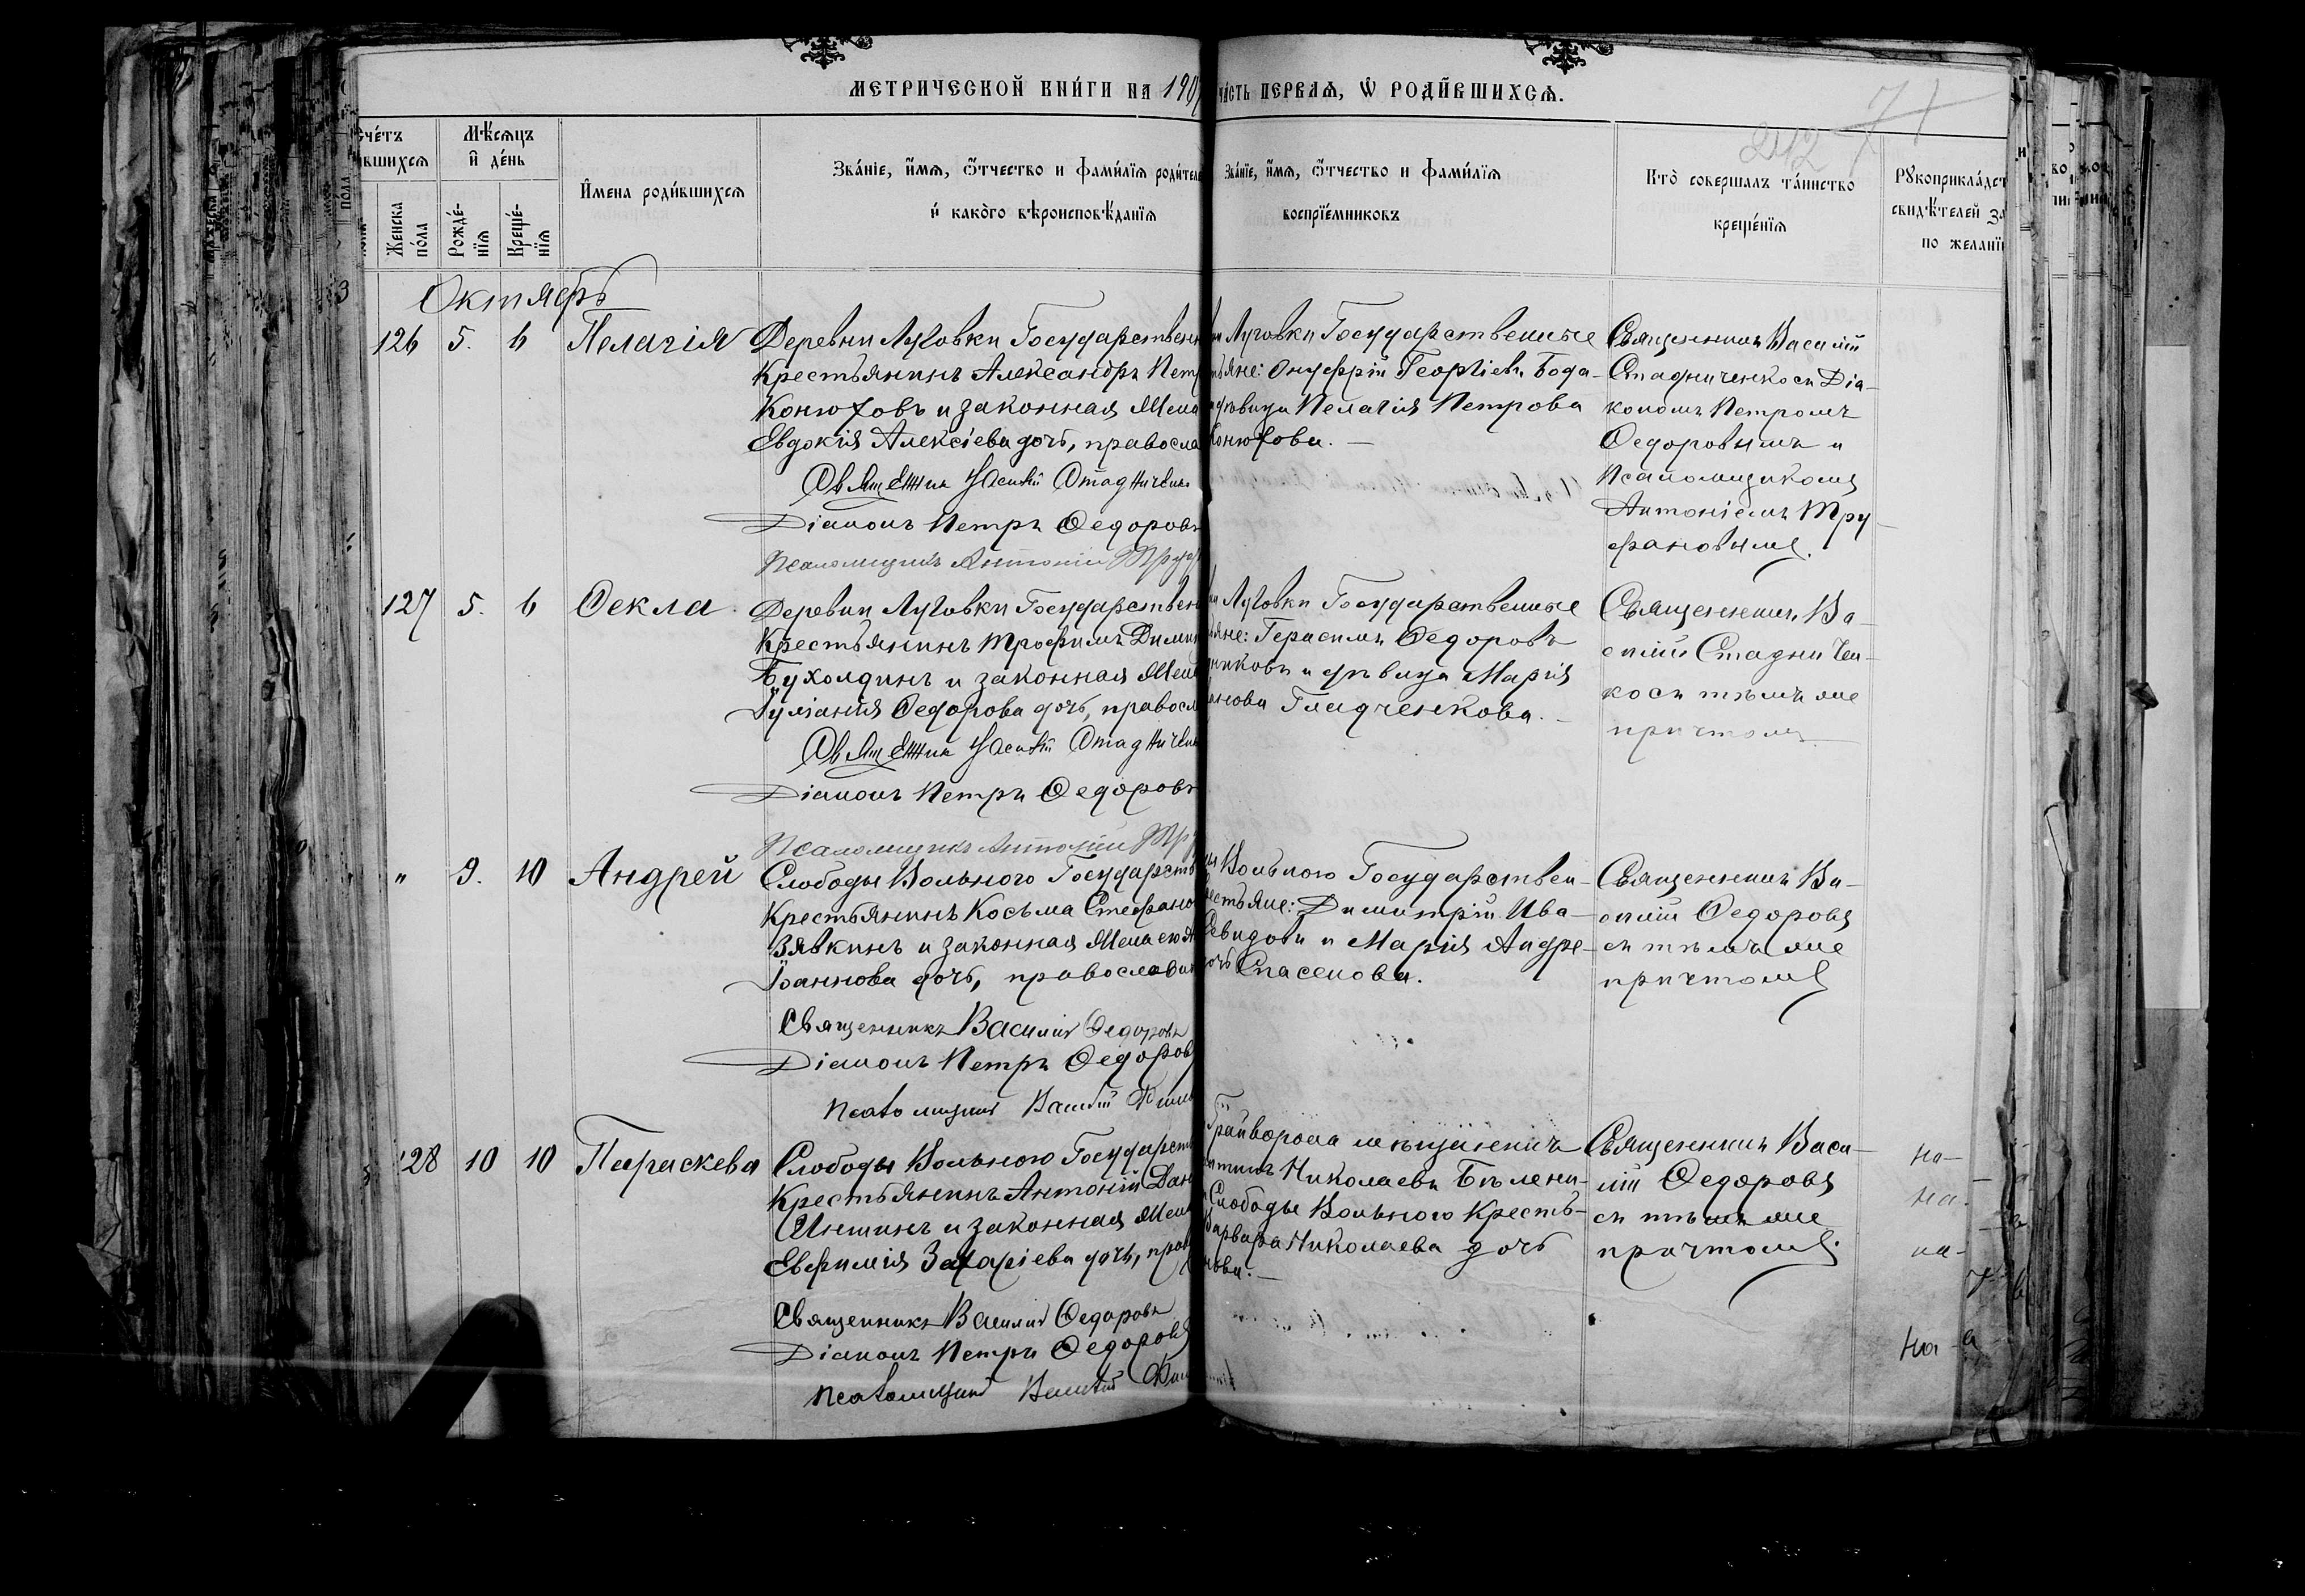 МЕТРИЧЕСКОЙ КНИ́ГИ НА 190
ЧА́СТЬ ПЕРВАЯ, Ѿ РОДИ́ВШИХСЯ.
71
212
Счéтъ
ившихся
Мѣ́сяцъ
и́ де́нь
Женска
по́ла
Рожде́-
нія
Креще́-
нія
И́мена роди́вшихся
Зва́ніе, и́мя, ѿтчество и фами́лія роди́теле
и́ како́го вѣроисповѣ́данія
Зва́ніе, и́мя, ѿтчество и фами́лія
воспріе́мниковъ
Кто̀ совершалъ та́инство
креще́нія
Рꙋкоприкла́дст
свидѣ́телей за
по желані
Октябрь
126 5. 6 Пелагія
Деревни Луговки Государственн
Крестьянинъ Александръ Петр
Конюховъ и законная Жена
Евдокія Алексіева дочь, правосла
Священник Василій Стадничен
Діаконъ Петръ Ѳедоровъ
Псаломщикъ Антоній Труф
и Луговки Государственные
тьяне: Онуфрій Георгіевъ Бода-
дѣвица Пелагія Петрова
Конюхова. —
Священникъ Василій
Стадниченко съ Діа-
кономъ Петромъ
Ѳедоровымъ и
Псаломщикомъ
Антоніемъ Тру-
фановымъ.
127 5. 6 Ѳекла
Деревни Луговки Государствен
Крестьянинъ Трофимъ Дими
Бухолдинъ и законная Жен
Іуліанія Ѳедорова дочь, правосл
Священник Василій Стадничен
Діаконъ Петръ Ѳедоровъ
Псаломщикъ Антоній Тру
и Луговки Государственные
яне: Герасимъ Ѳедоровъ
никовъ и дѣвица Марія
анова Гладченкова. —
Священникъ Ва-
силій Стадничен-
ко съ тѣмъ же
причтомъ
" 9. 10 Андрей
Слободы Вольного Государств
Крестьянинъ Косьма Стефано
Зявкинъ и законная Жена его А
Іоаннова дочь, православн
Священникъ Василий Ѳедоровъ
Діаконъ Петръ Ѳедоровъ
Псаломщикъ Василій
ы Вольного Государствен-
естьяне: Димитрій Ива-
Севидовъ и Марія Андре-
очь Спасенова.
Священникъ Ва-
силій Ѳедоровъ
съ тѣмъ же
причтомъ
128 10 10 Параскева
Слободы Вольного Государств
Крестьянинъ Антоній Дан
и законная Жена
Евфимія Захаріева дочь, прав
Священникъ Василий Ѳедоровъ
Діаконъ Петръ Ѳедоровъ
Псаломщикъ Василій
Грайворона мѣщанинъ
Николаевъ
Слободы Вольного Кресть-
Варвара Николаева дочь
ова. —
Священникъ Васи-
лій Ѳедоровъ
съ тѣмъ же
причтомъ.
на-
на-
на-
на-